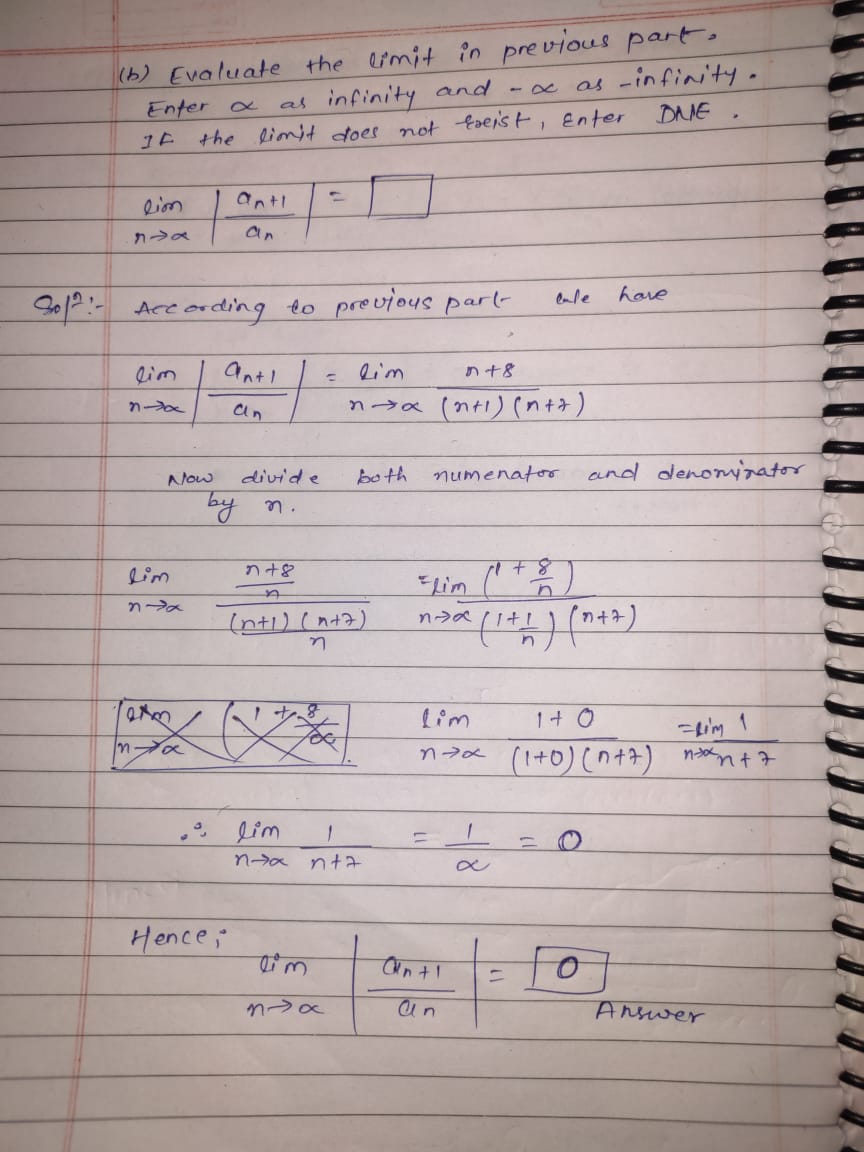 (b) Evaluate the limit in previous part.
Enter ∝ as infinity and -∝ as -infinity.
If the limit does not exist, Enter DNE.
lim n→∝ | an+1 / an | = □
Solⁿ:- According to previous part we have
lim n→∝ | an+1 / an | = lim n→∝ n+8 / (n+1)(n+7)
Now divide both numenator and denominator
by n.
lim n→∝ (n+8 / n) / ((n+1)(n+7) / n) = lim n→∝ (1 + 8/n) / (1 + 1/n)(n+7)
lim n→∝ (1 + 8/∝) lim n→∝ 1+0 / (1+0)(n+7) = lim n→∝ 1 / n+7
∴ lim n→∝ 1 / n+7 = 1 / ∝ = 0
Hence;
lim n→∝ | an+1 / an | = 0
Answer